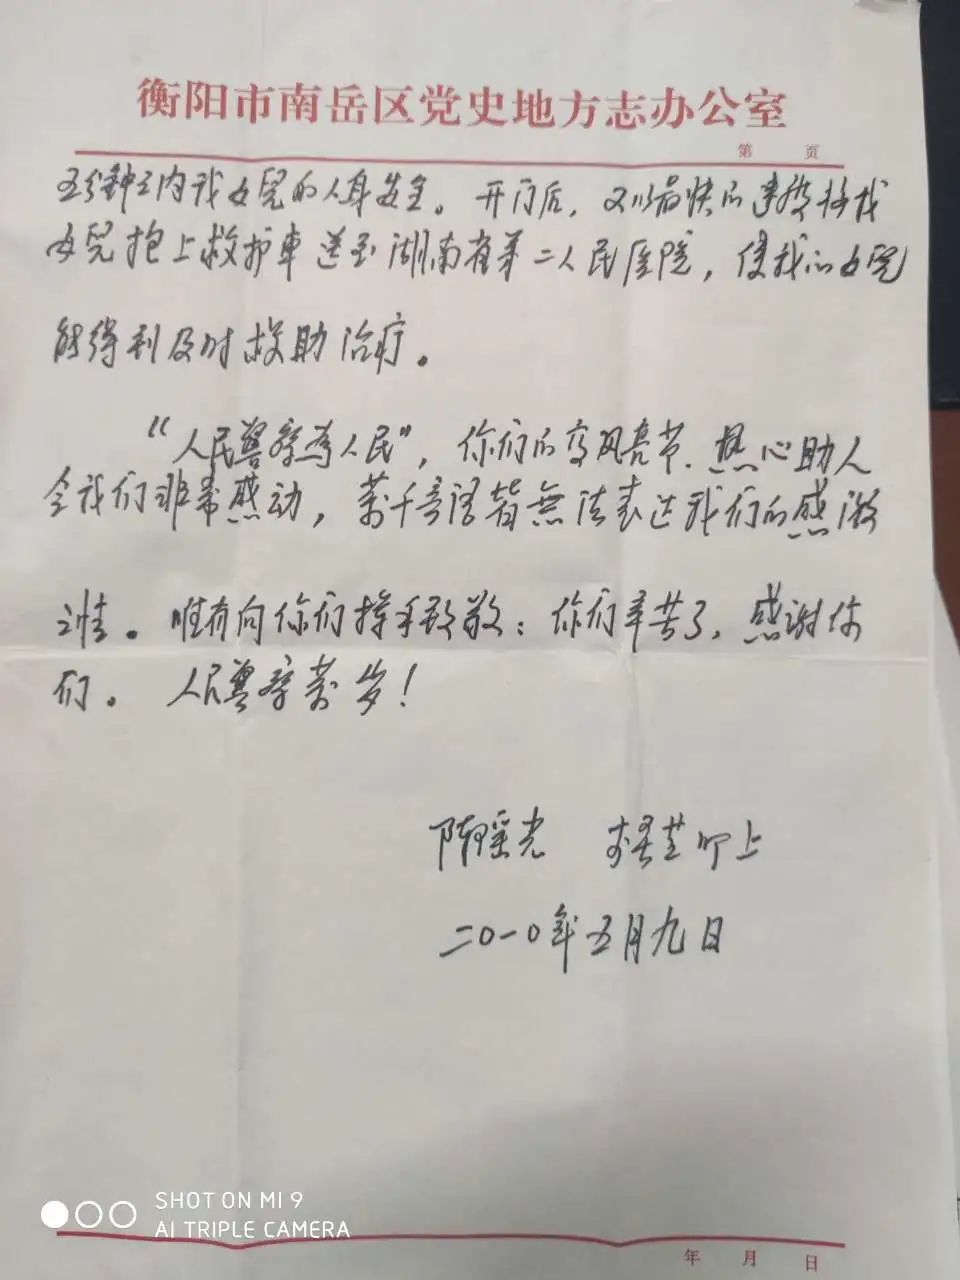 衡阳市南岳区党史地方志办公室
第 页
五分钟之内我女兒的人身安全。开门后，又以最快的速度将我
女兒抱上救护车送至湖南省第二人民医院，使我的女兒
能得到及时救助治疗。
“人民警察为人民”，你们的高风亮节、热心助人
令我们非常感动，萬千言语皆無法表达我们的感激
之情。唯有向你们挥手致敬：你们辛苦了，感谢你
们。人民警察萬岁！
瑶光 叩上
二〇一〇年五月九日
SHOT ON MI 9
AI TRIPLE CAMERA
年 月 日